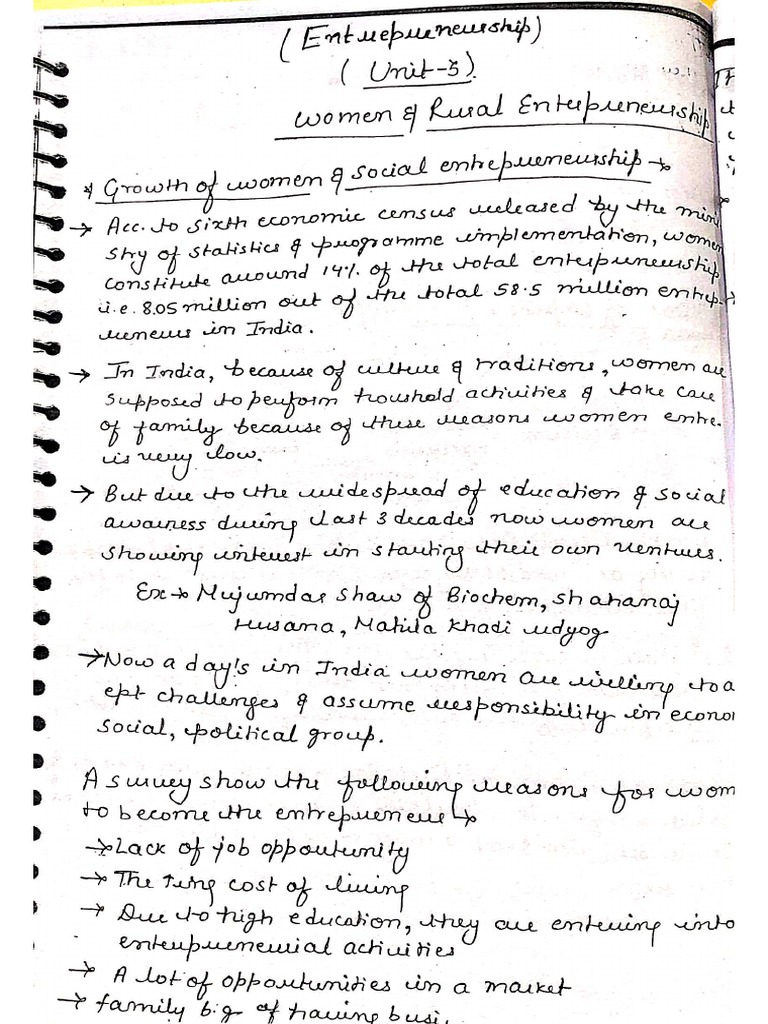 (Entrepreneurship)
(Unit-5).
Women & Rural Entrepreneurship
* Growth of women & social entrepreneurship →
→ Acc. to sixth economic census released by the mini
stry of statistics & programme implementation, women
constitute around 14% of the total entrepreneurship
i.e. 8.05 million out of the total 58.5 million entrep-
reneurs in India.
→ In India, because of culture & traditions, women are
supposed to perform houshold activities & take care
of family because of these reasons women entre.
is very low.
→ But due to the widespread of education & social
awairness during last 3 decades now women are
showing interest in starting their own ventures.
Ex → Mujumdar Shaw of Biochem, Shahanaj
Husana, Mahila Khadi udyog
→ Now a day's in India women are willing to a
ept challenges & assume responsibility in econo
social, political group.
A survey show the following reasons for wom
to become the entrepreneur →
→ Lack of job oppotunity
→ The cost of living
→ Due to high education, they are entering into
entrepreneurial activities
→ A lot of opportunities in a market
→ family b.g. of having busi.